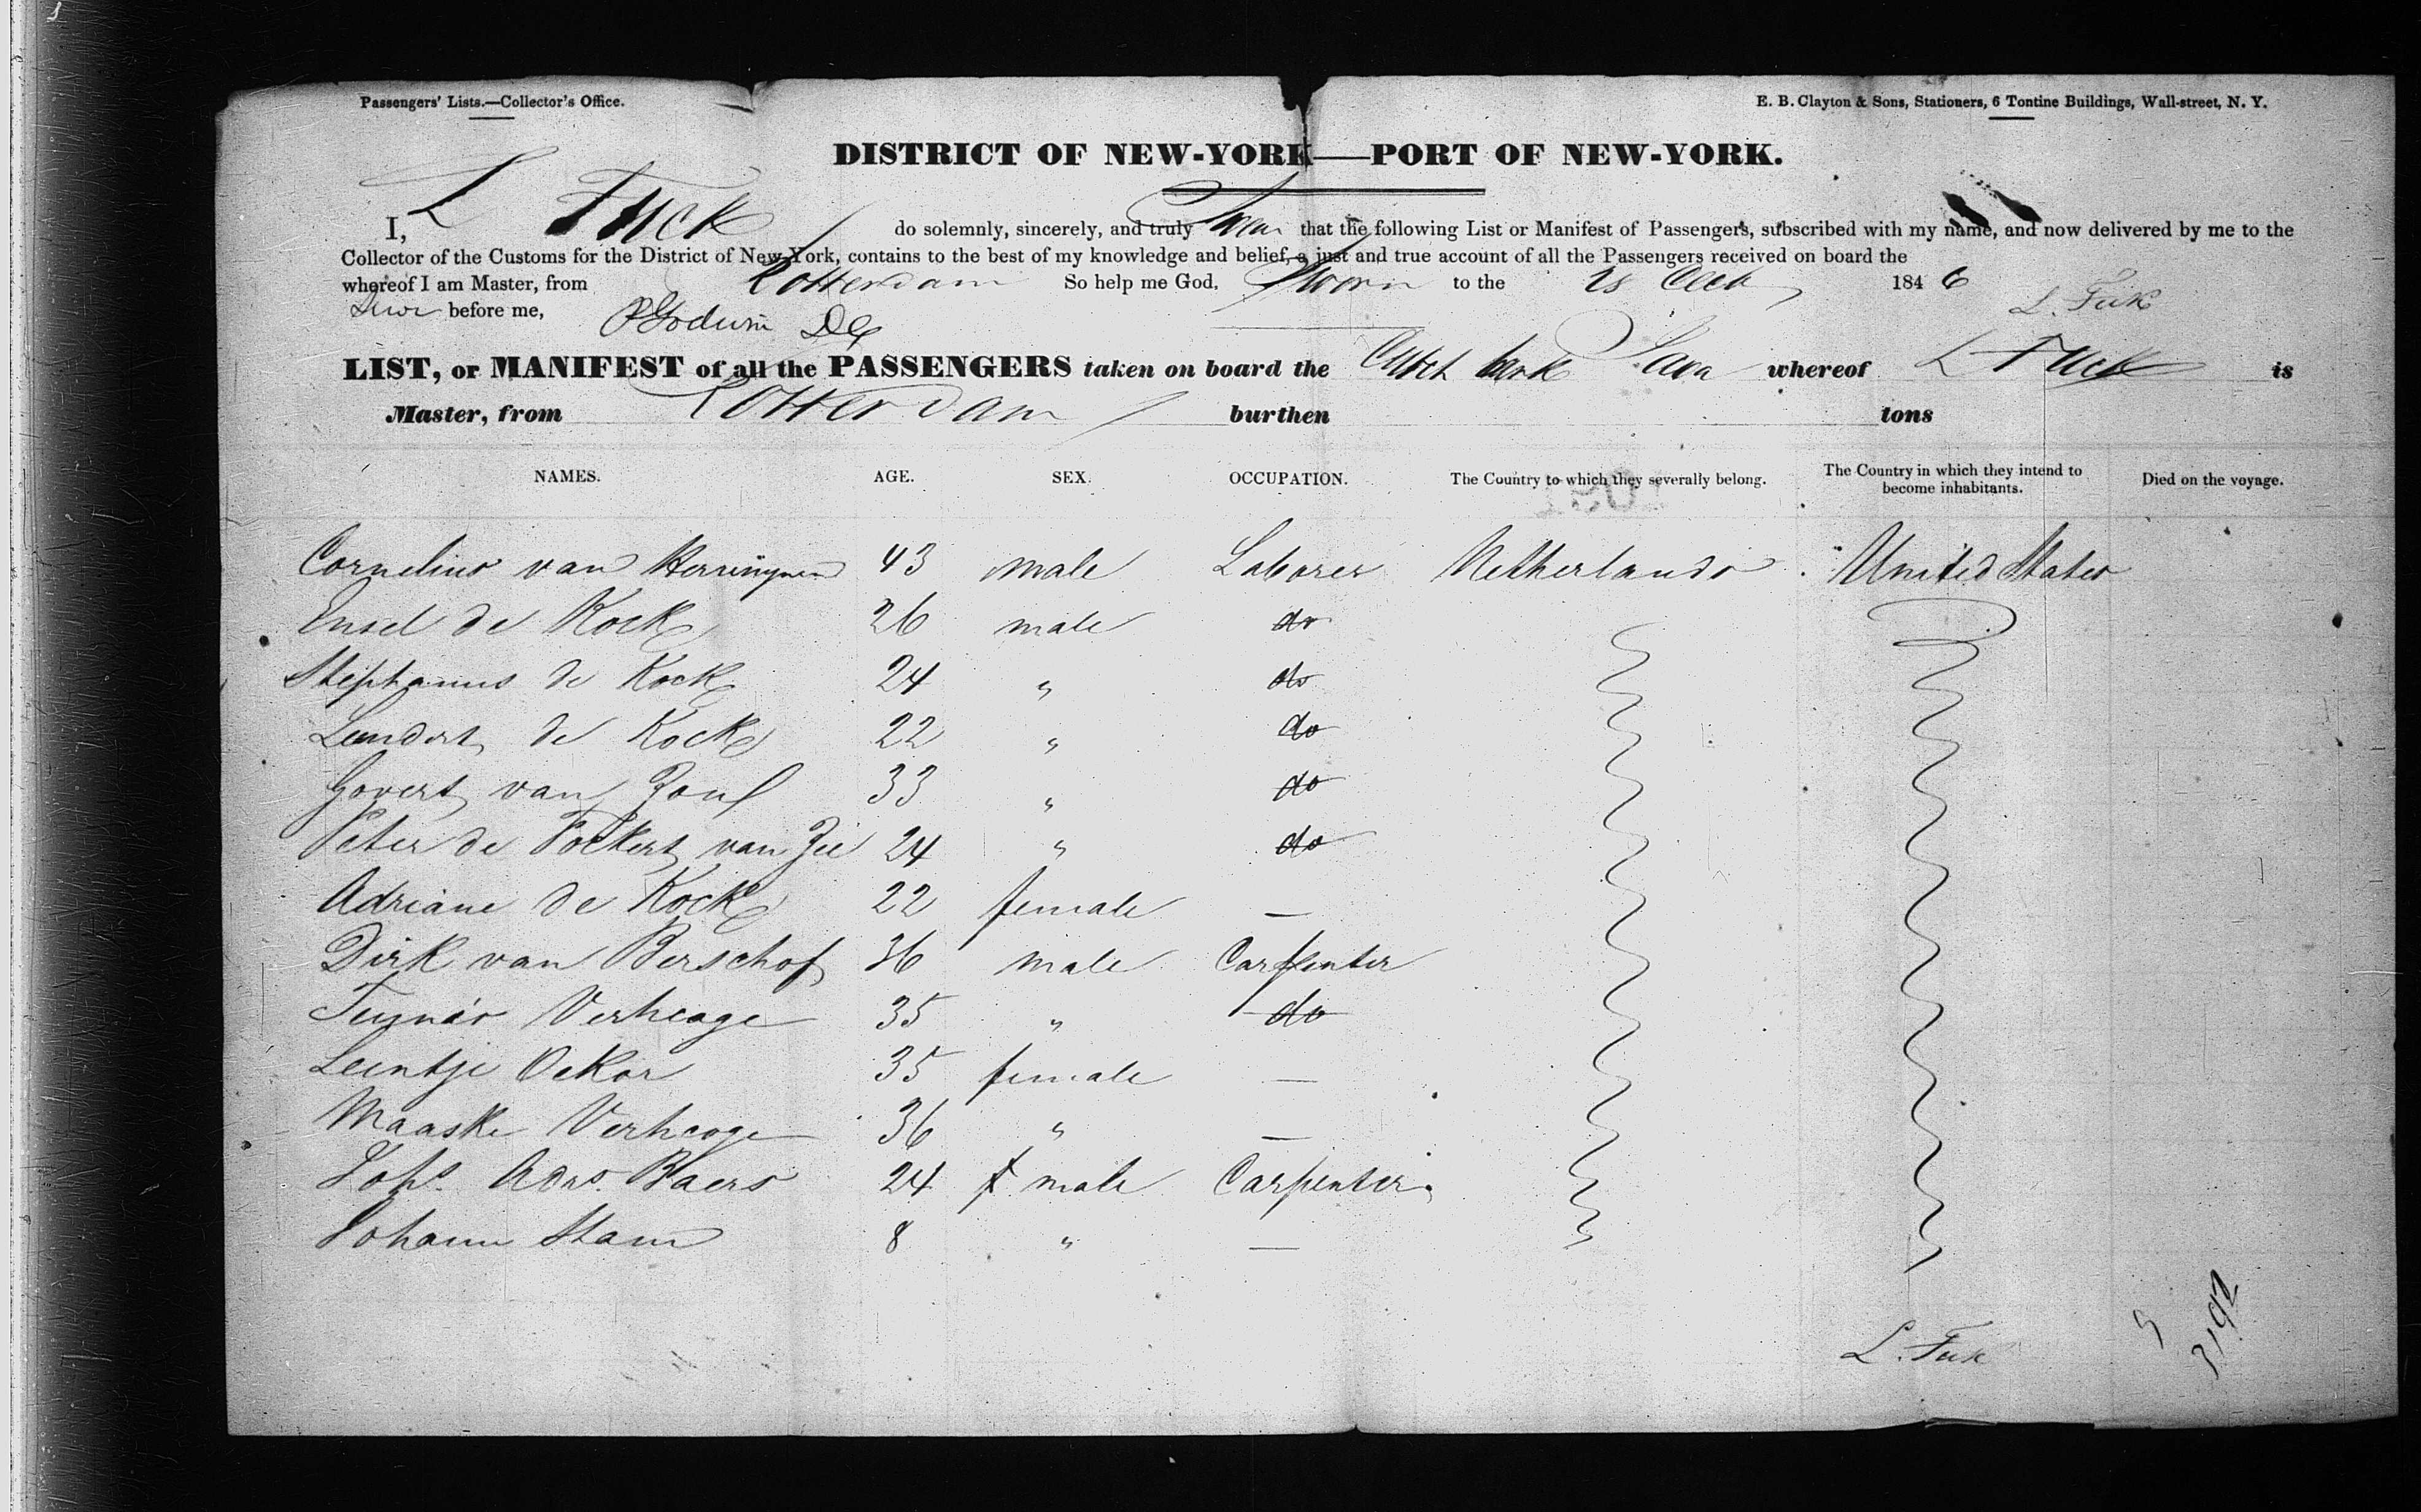 Passengers' Lists.—Collector's Office.
E. B. Clayton & Sons, Stationers, 6 Tontine Buildings, Wall-street, N. Y.
DISTRICT OF NEW-YORK—PORT OF NEW-YORK.
I, L Fuck do solemnly, sincerely, and truly Swear that the following List or Manifest of Passengers, subscribed with my name, and now delivered by me to the
Collector of the Customs for the District of New-York, contains to the best of my knowledge and belief, a just and true account of all the Passengers received on board the
whereof I am Master, from Rotterdam So help me God. Sworn to the 1846
before me, L. Fuk
LIST, or MANIFEST of all the PASSENGERS taken on board the Dutch bark whereof L Fuck is
Master, from Rotterdam burthen tons
NAMES. AGE. SEX. OCCUPATION. The Country to which they severally belong. The Country in which they intend to become inhabitants. Died on the voyage.
Cornelius van 43 male Laborer Netherlands United States
Ensel de Kock 26 male do
Stephanus de Kock 24 " do
Leendert de Kock 22 " do
Govert van 33 " do
Peter de van Zee 24 " do
Adriane de Kock 22 female —
Dirk van Berschof 36 male Carpenter
Verheage 35 " do
Leentje DeKor 35 female —
Maaske Verheage 36 " —
Johs. Adrs. Baers 24 male Carpenter
Johann Stam 8 " —
L. Fuk